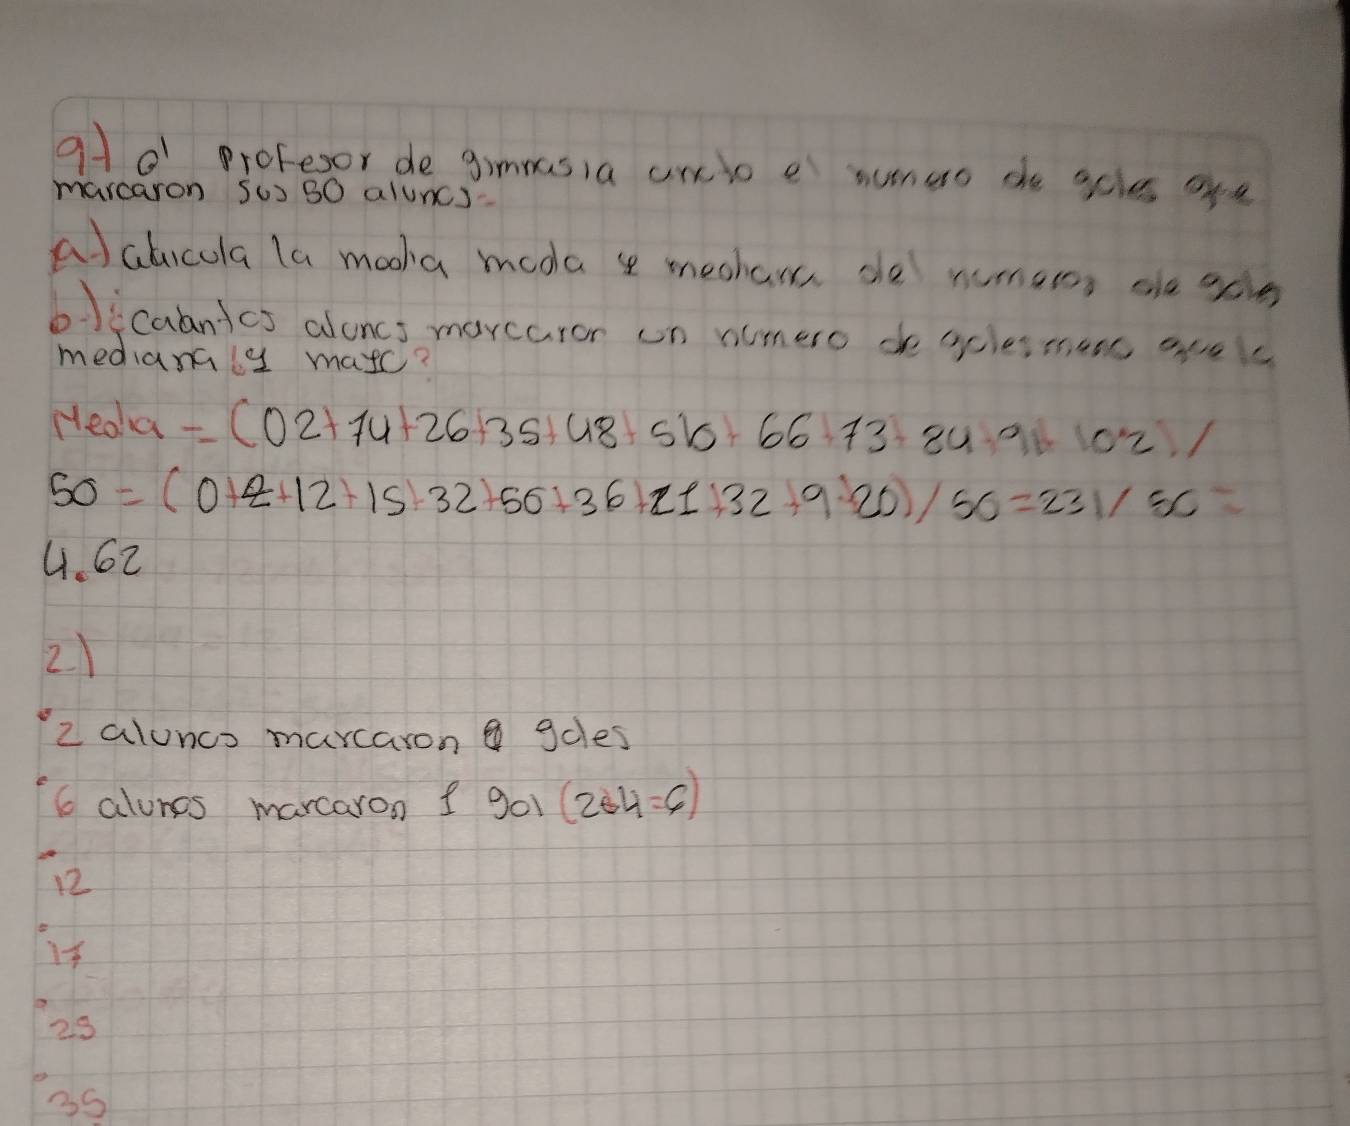 9) al Profesor de gimnasia anoto el numero de goles que
marcaron sus 50 alunos
a) alucula la media moda y mediana del numeros de goles
b) ¿cabantos alunos marcaron un numero de goles meno que la
mediana ¿y mayo?
Media = (02+14+26+35+48+510+66+73+84+91+102)/
50 = (0+4+12+15+32+50+36+21+32+9+20)/50=231/50=
4.62
2)
2 alunos marcaron 0 goles
6 alunos marcaron 1 gol (2+4=6)
12
17
25
35